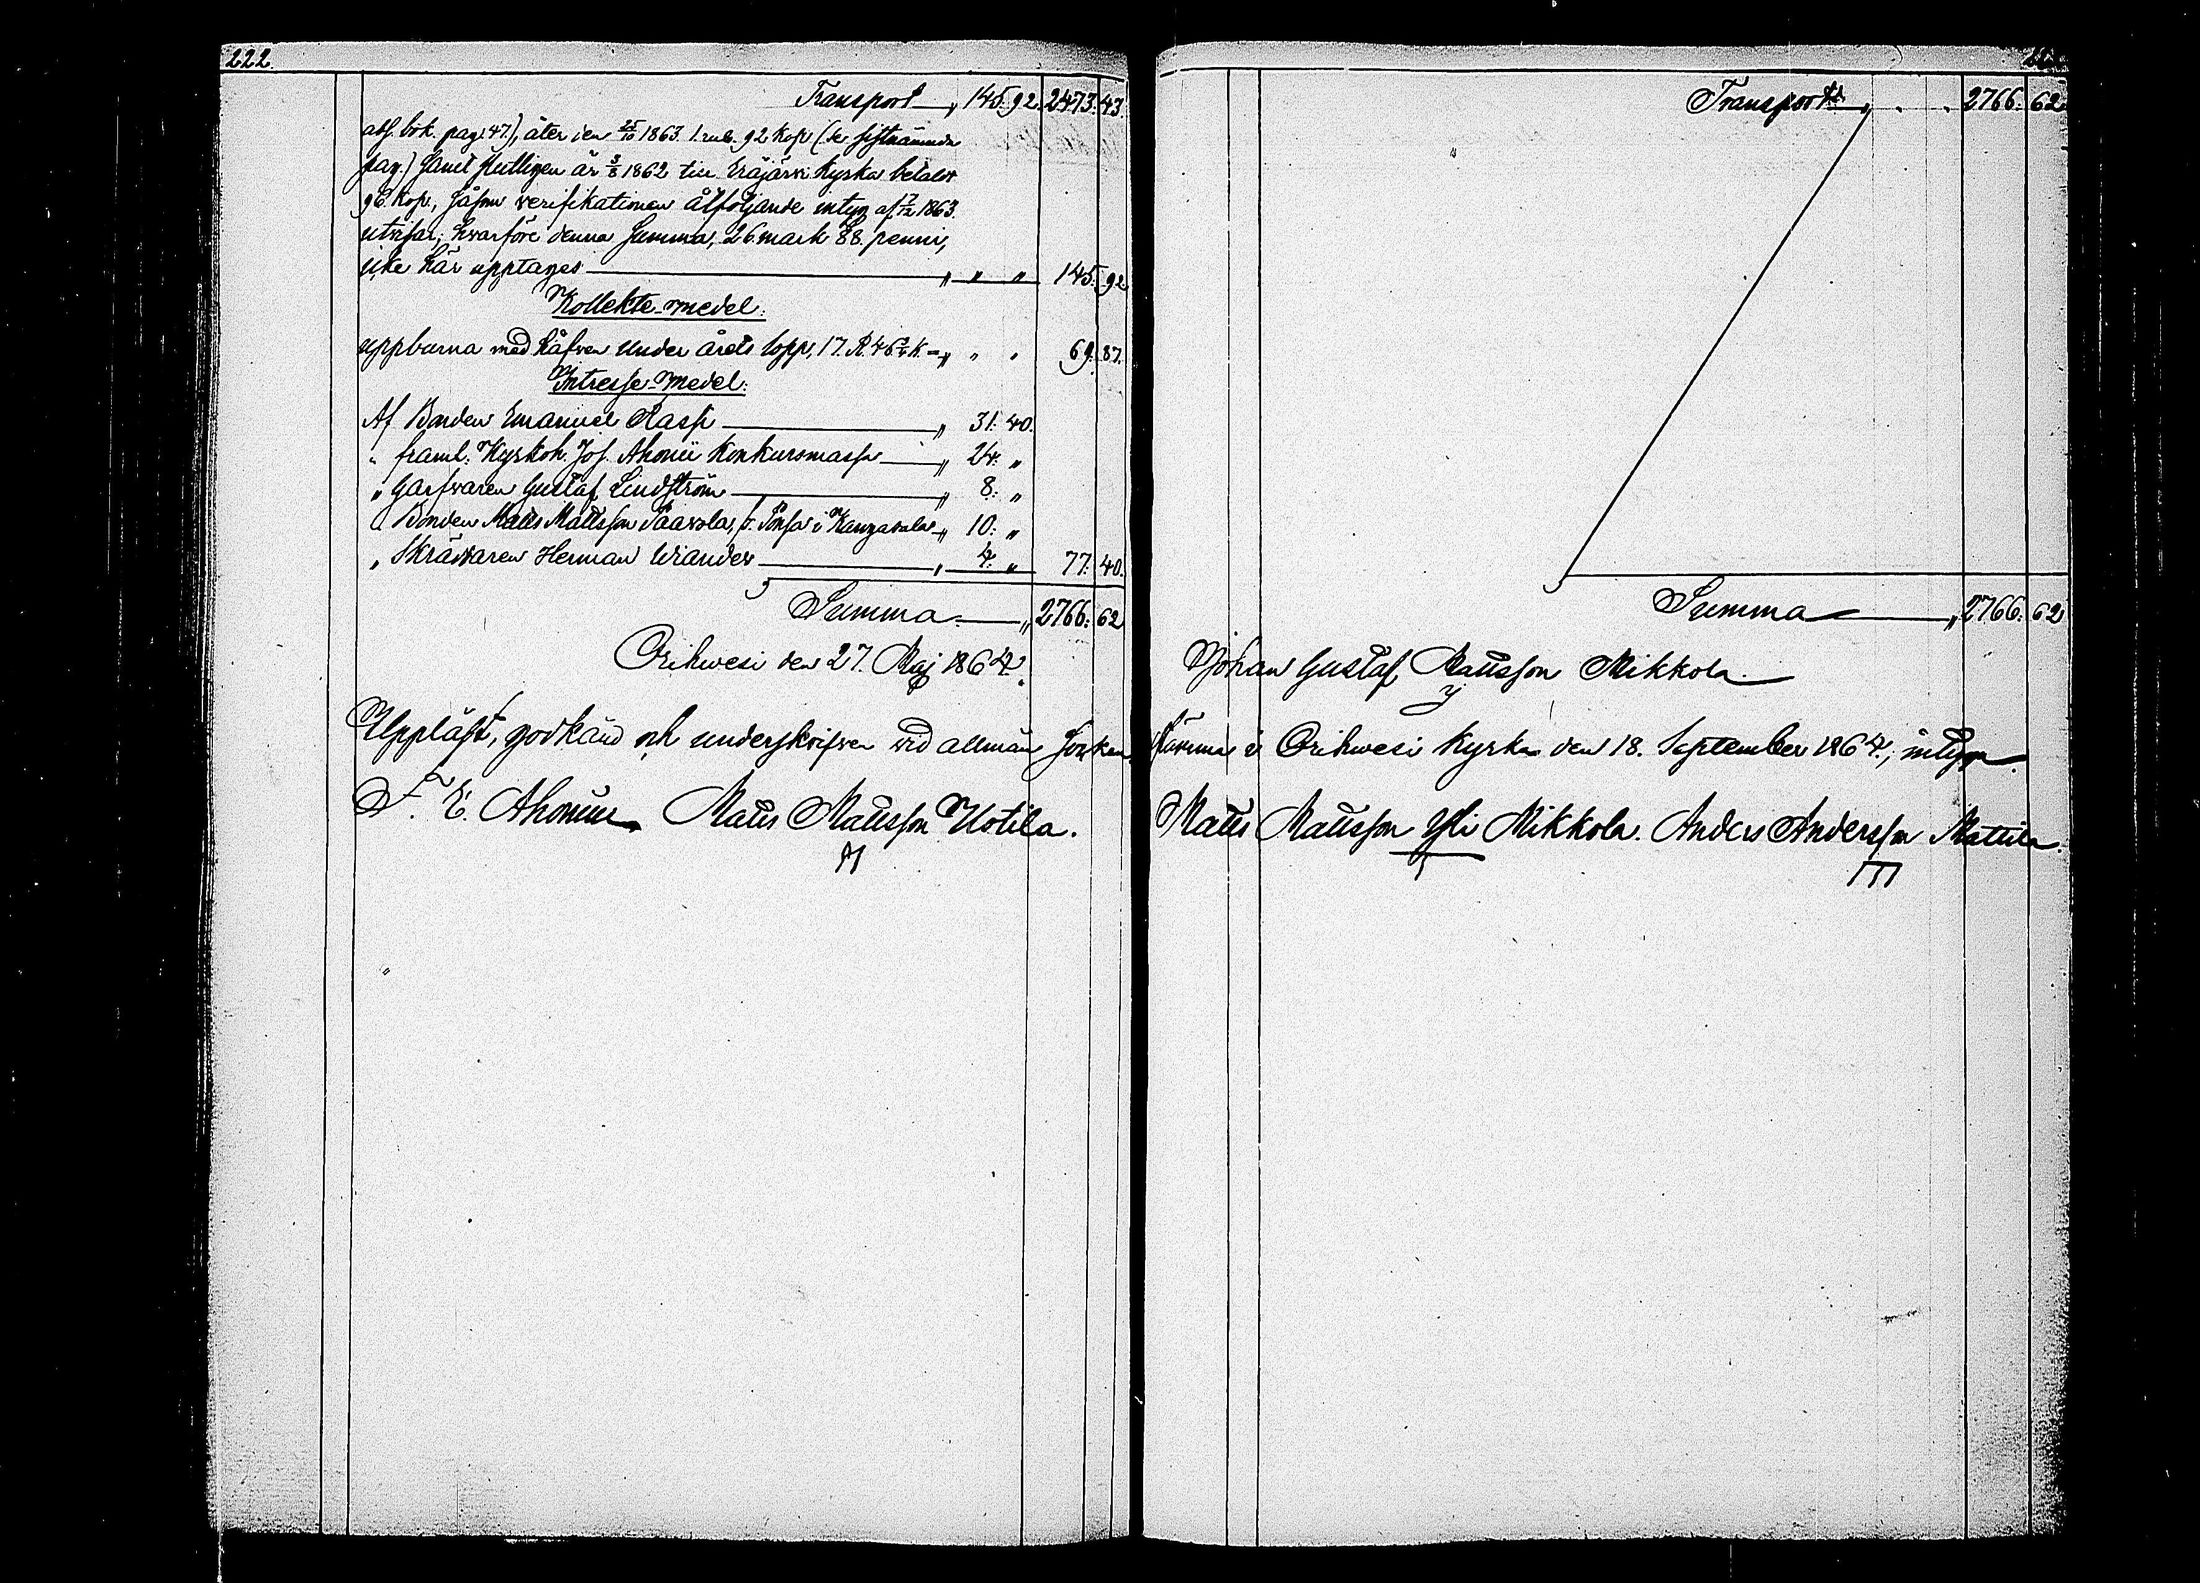 222.
Transport „ 145. 92. 2473. 43.
afs. bok. pag. 47.), åter den 25/10 1863. 1. rub. 92 kop. (se sistnämnda
pag.) samt slutligen är 3/8 1862 till Eräjärvi Kyrka betalt
96. kop., såsom verifikationen åtföljande intyg af 7/12 1863.
utvisar; hvarföre denna summa, 26. mark 88. penni,
icke här upptages „ „ „ 145. 92
Kollekte-medel:
uppburna med håfven under årets lopp, 17. R. 46 3/4 K - „ „ „ 69. 87.
Intresse-medel:
Af Bonden Emanuel Rasp „ 31. 40.
„ framl. Kyrkoh. Jos. Ahonii Konkursmassa „ 24. „
„ Garfvaren Gustaf Lindström „ 8. „
„ Bonden Matts Mattsson Paavola, i Kangasala „ 10. „
„ Skräddaren Herman Wiander „ 4. „ 77. 40.
Summa „ 2766. 62
Orihwesi den 27. Maj 1864.
Transport „ . . 2766. 62
Summa „ 2766. 62
Johan Gustaf Mattsson Mikkola.
Uppläst, godkänd och underskrifven vid allmän sockenstämma i Orihwesi Kyrka den 18. September 1864, intyga
F. E. Ahonius Matts Mattsson Kotila. Matts Mattsson Yli Mikkola. Anders Andersson Mattila.